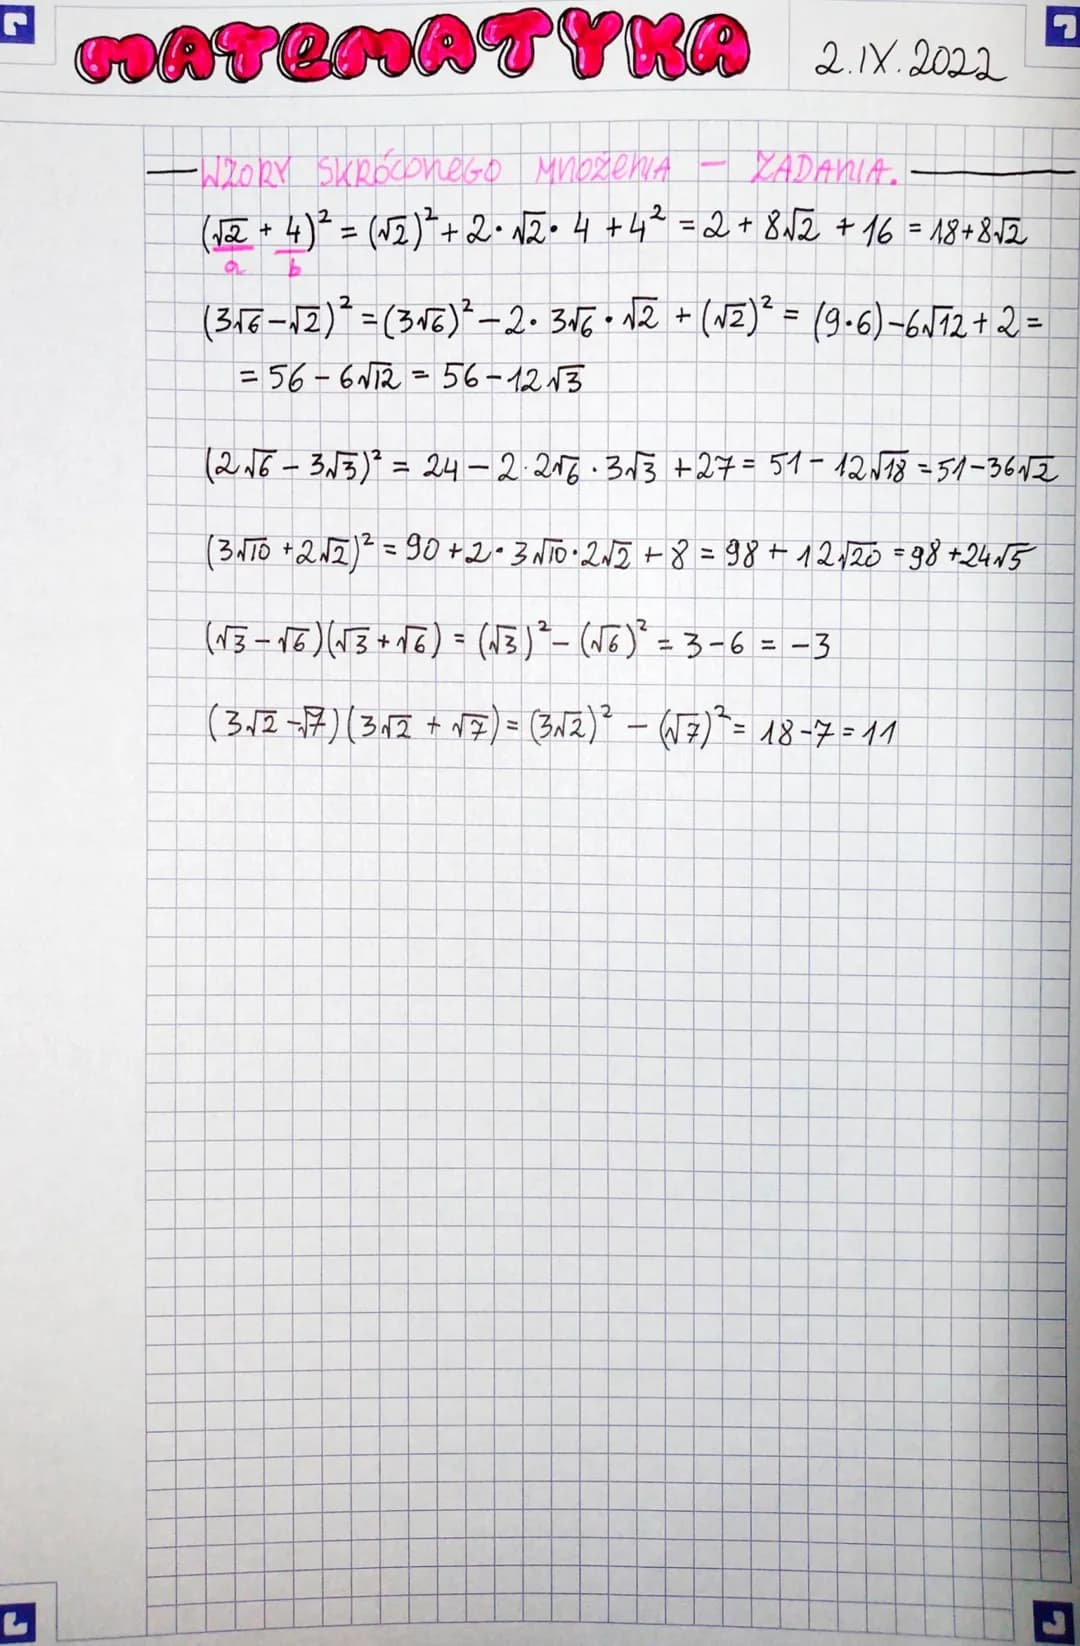 MATEMATYKA 2.IX.2022
WZORY SKRÓCONEGO MNOŻENIA - ZADANIA.
(√2 + 4)² = (√2)² + 2·√2·4 + 4² = 2 + 8√2 + 16 = 18+8√2
a b
(3√6-√2)² = (3√6)² - 2·3√6·√2 + (√2)² = (9·6)-6√12+2=
= 56-6√12 = 56-12√3
(2√6 - 3√3)² = 24 - 2·2√6·3√3 + 27 = 51 - 12√18 = 51-36√2
(3√10 + 2√2)² = 90 + 2·3√10·2√2 + 8 = 98 + 12√20 = 98 + 24√5
(√3-√6)(√3+√6) = (√3)² - (√6)² = 3-6 = -3
(3√2-√7)(3√2 + √7) = (3√2)² - (√7)² = 18-7 = 11